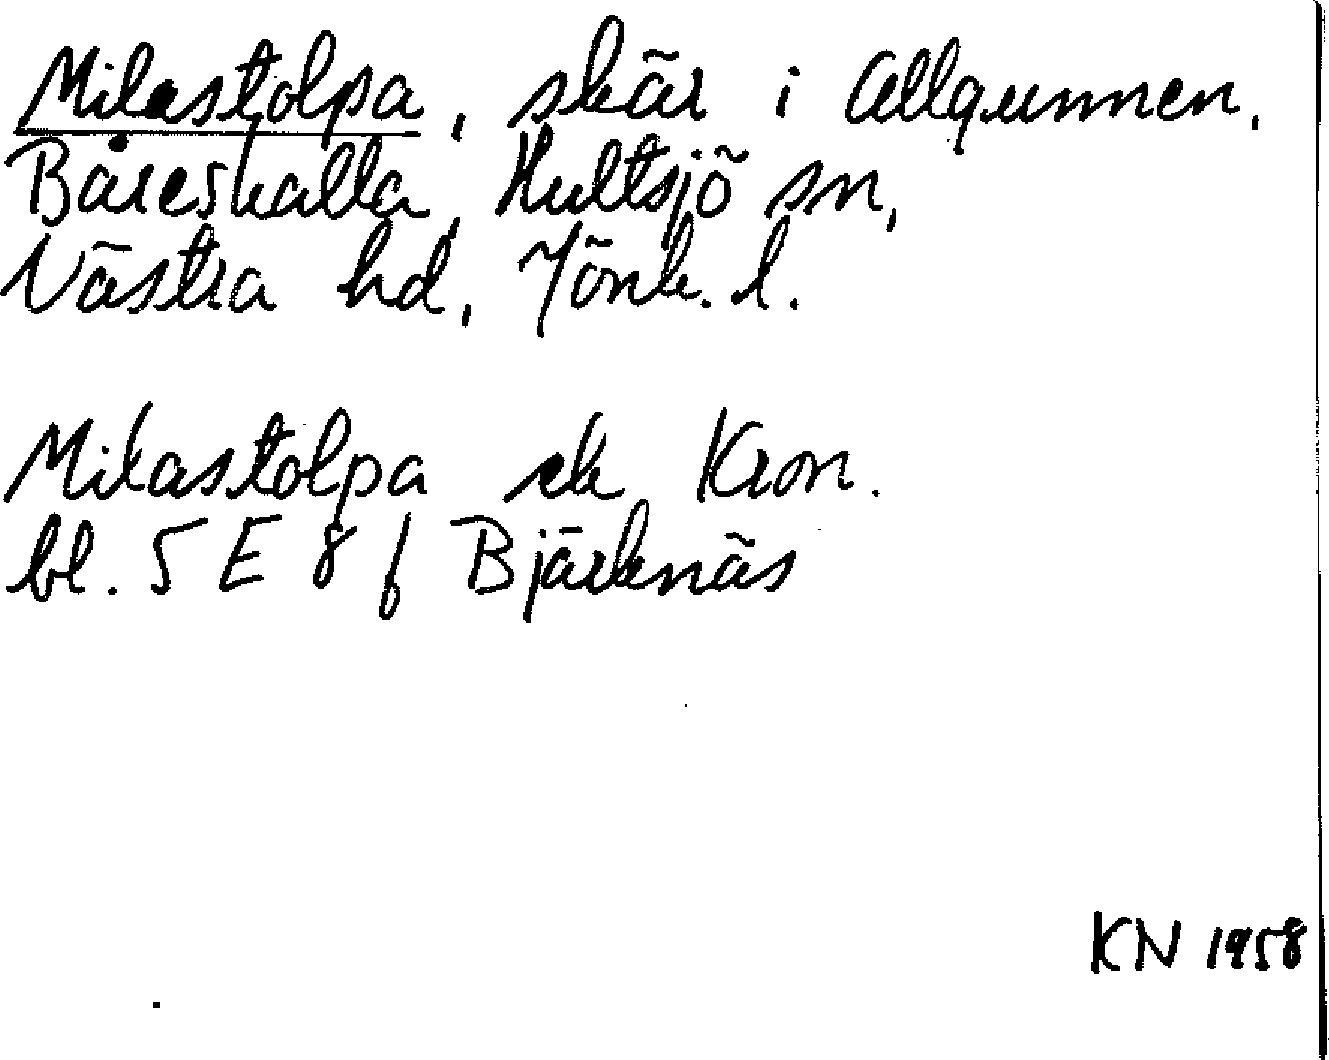 Milastolpa, skär i Allgunnen,
Båreskalla, Hultsjö sn,
Västra hd, Jönk. l.
Milastolpa ek Kron.
bl. 5 E 8 f Bjärknäs
KN 1958